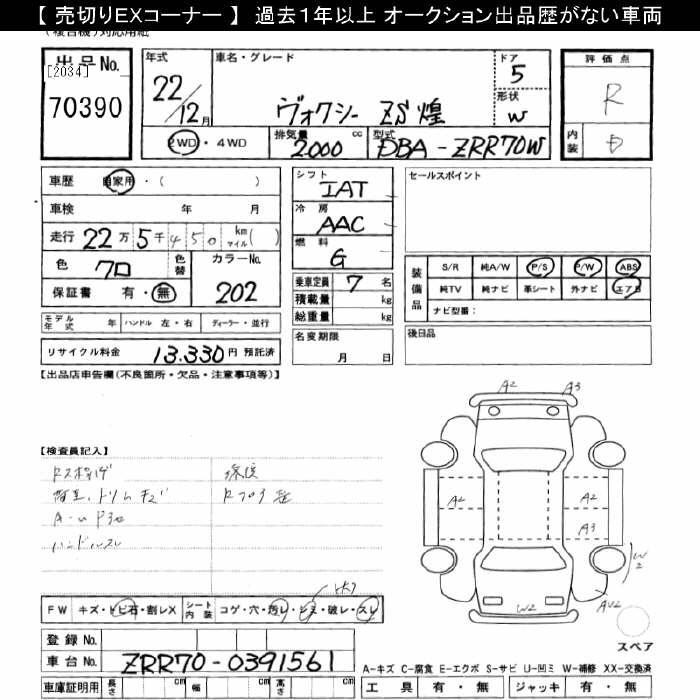 【 売切りEXコーナー 】 過去1年以上 オークション出品歴がない車両
(複合機)対応用紙
出品No.
[2034]
70390
年式
22/12月
車名・グレード
ヴォクシー ZS煌
ドア
5
形状
W
評価点
R
内装
D
2WD・4WD
排気量
2000 cc
型式
DBA-ZRR70W
車歴 自家用・( )
車検 年 月
走行 22万5千450 km マイル( )
色 クロ 色替
カラーNo. 202
保証書 有・無
モデル年式 年 ハンドル 左・右 ディーラー・並行
リサイクル料金 13.330円 預託済
シフト
IAT
冷房
AAC
燃料
G
乗車定員 7 名
積載量 kg
総重量 kg
名変期限
月 日
セールスポイント
装備品
S/R 純A/W P/S P/W ABS
純TV 純ナビ 革シート 外ナビ エアB
ナビ型番:
後日品
【出品店申告欄(不良箇所・欠品・注意事項等)】
【検査員記入】
ハンドルスレ
FW キズ・トビ石・割レX
シート内装 コゲ・穴・汚レ・シミ・破レ・スレ
登録No.
車台No. ZRR70-0391561
車庫証明用 長さ cm 幅 cm 高さ cm
A2
A3
A2
A2
A3
W2
W2
AU2
スペア
A-キズ C-腐食 E-エクボ S-サビ U-凹ミ W-補修 XX-交換済
工具 有・無 ジャッキ 有・無